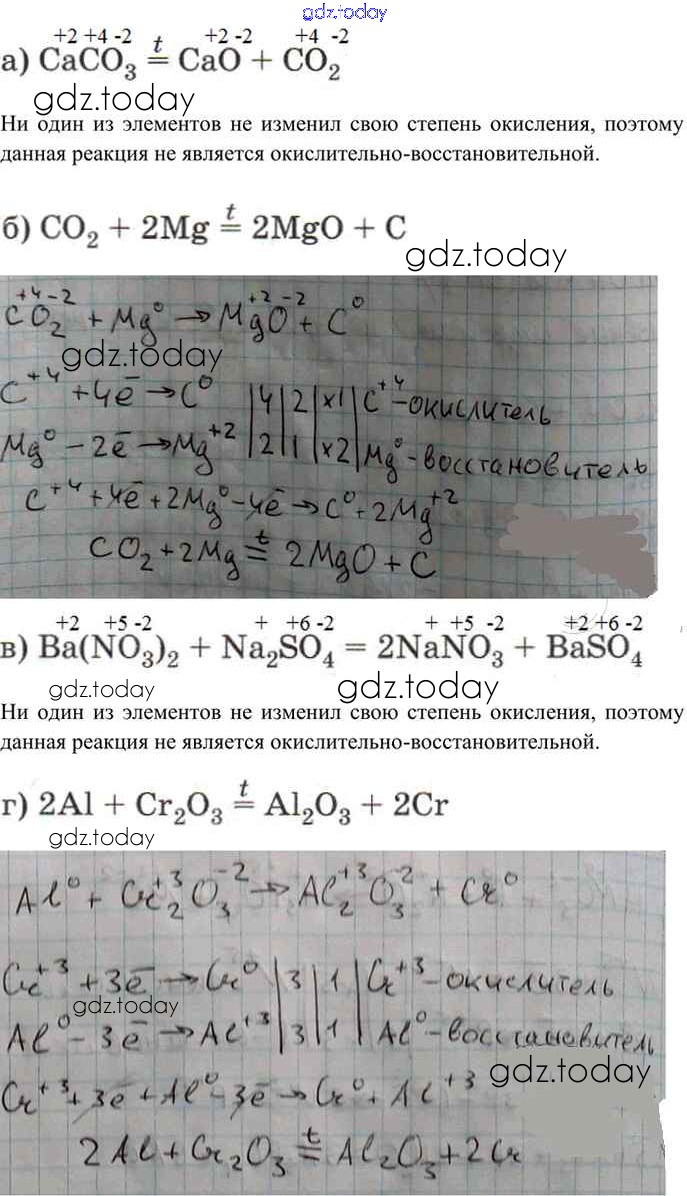 gdz.today
+2 +4 -2 +2 -2 +4 -2
а) CaCO₃ =ᵗ CaO + CO₂
gdz.today
Ни один из элементов не изменил свою степень окисления, поэтому
данная реакция не является окислительно-восстановительной.
б) CO₂ + 2Mg =ᵗ 2MgO + C
gdz.today
+4 -2 0 +2 -2 0
CO₂ + Mg → MgO + C
gdz.today
C⁺⁴ + 4ē → C⁰ |4|2|x1| C⁺⁴ - окислитель
Mg⁰ - 2ē → Mg⁺² |2|1|x2| Mg⁰ - восстановитель
C⁺⁴ + 4ē + 2Mg⁰ - 4ē → C⁰ + 2Mg⁺²
CO₂ + 2Mg =ᵗ 2MgO + C
+2 +5 -2 + +6 -2 + +5 -2 +2 +6 -2
в) Ba(NO₃)₂ + Na₂SO₄ = 2NaNO₃ + BaSO₄
gdz.today gdz.today
Ни один из элементов не изменил свою степень окисления, поэтому
данная реакция не является окислительно-восстановительной.
г) 2Al + Cr₂O₃ =ᵗ Al₂O₃ + 2Cr
gdz.today
Al⁰ + Cr₂⁺³O₃⁻² → Al₂⁺³O₃⁻² + Cr⁰
Cr⁺³ + 3ē → Cr⁰ |3|1| Cr⁺³ - окислитель
gdz.today
Al⁰ - 3ē → Al⁺³ |3|1| Al⁰ - восстановитель
gdz.today
Cr⁺³ + 3ē + Al⁰ - 3ē → Cr⁰ + Al⁺³
2Al + Cr₂O₃ =ᵗ Al₂O₃ + 2Cr